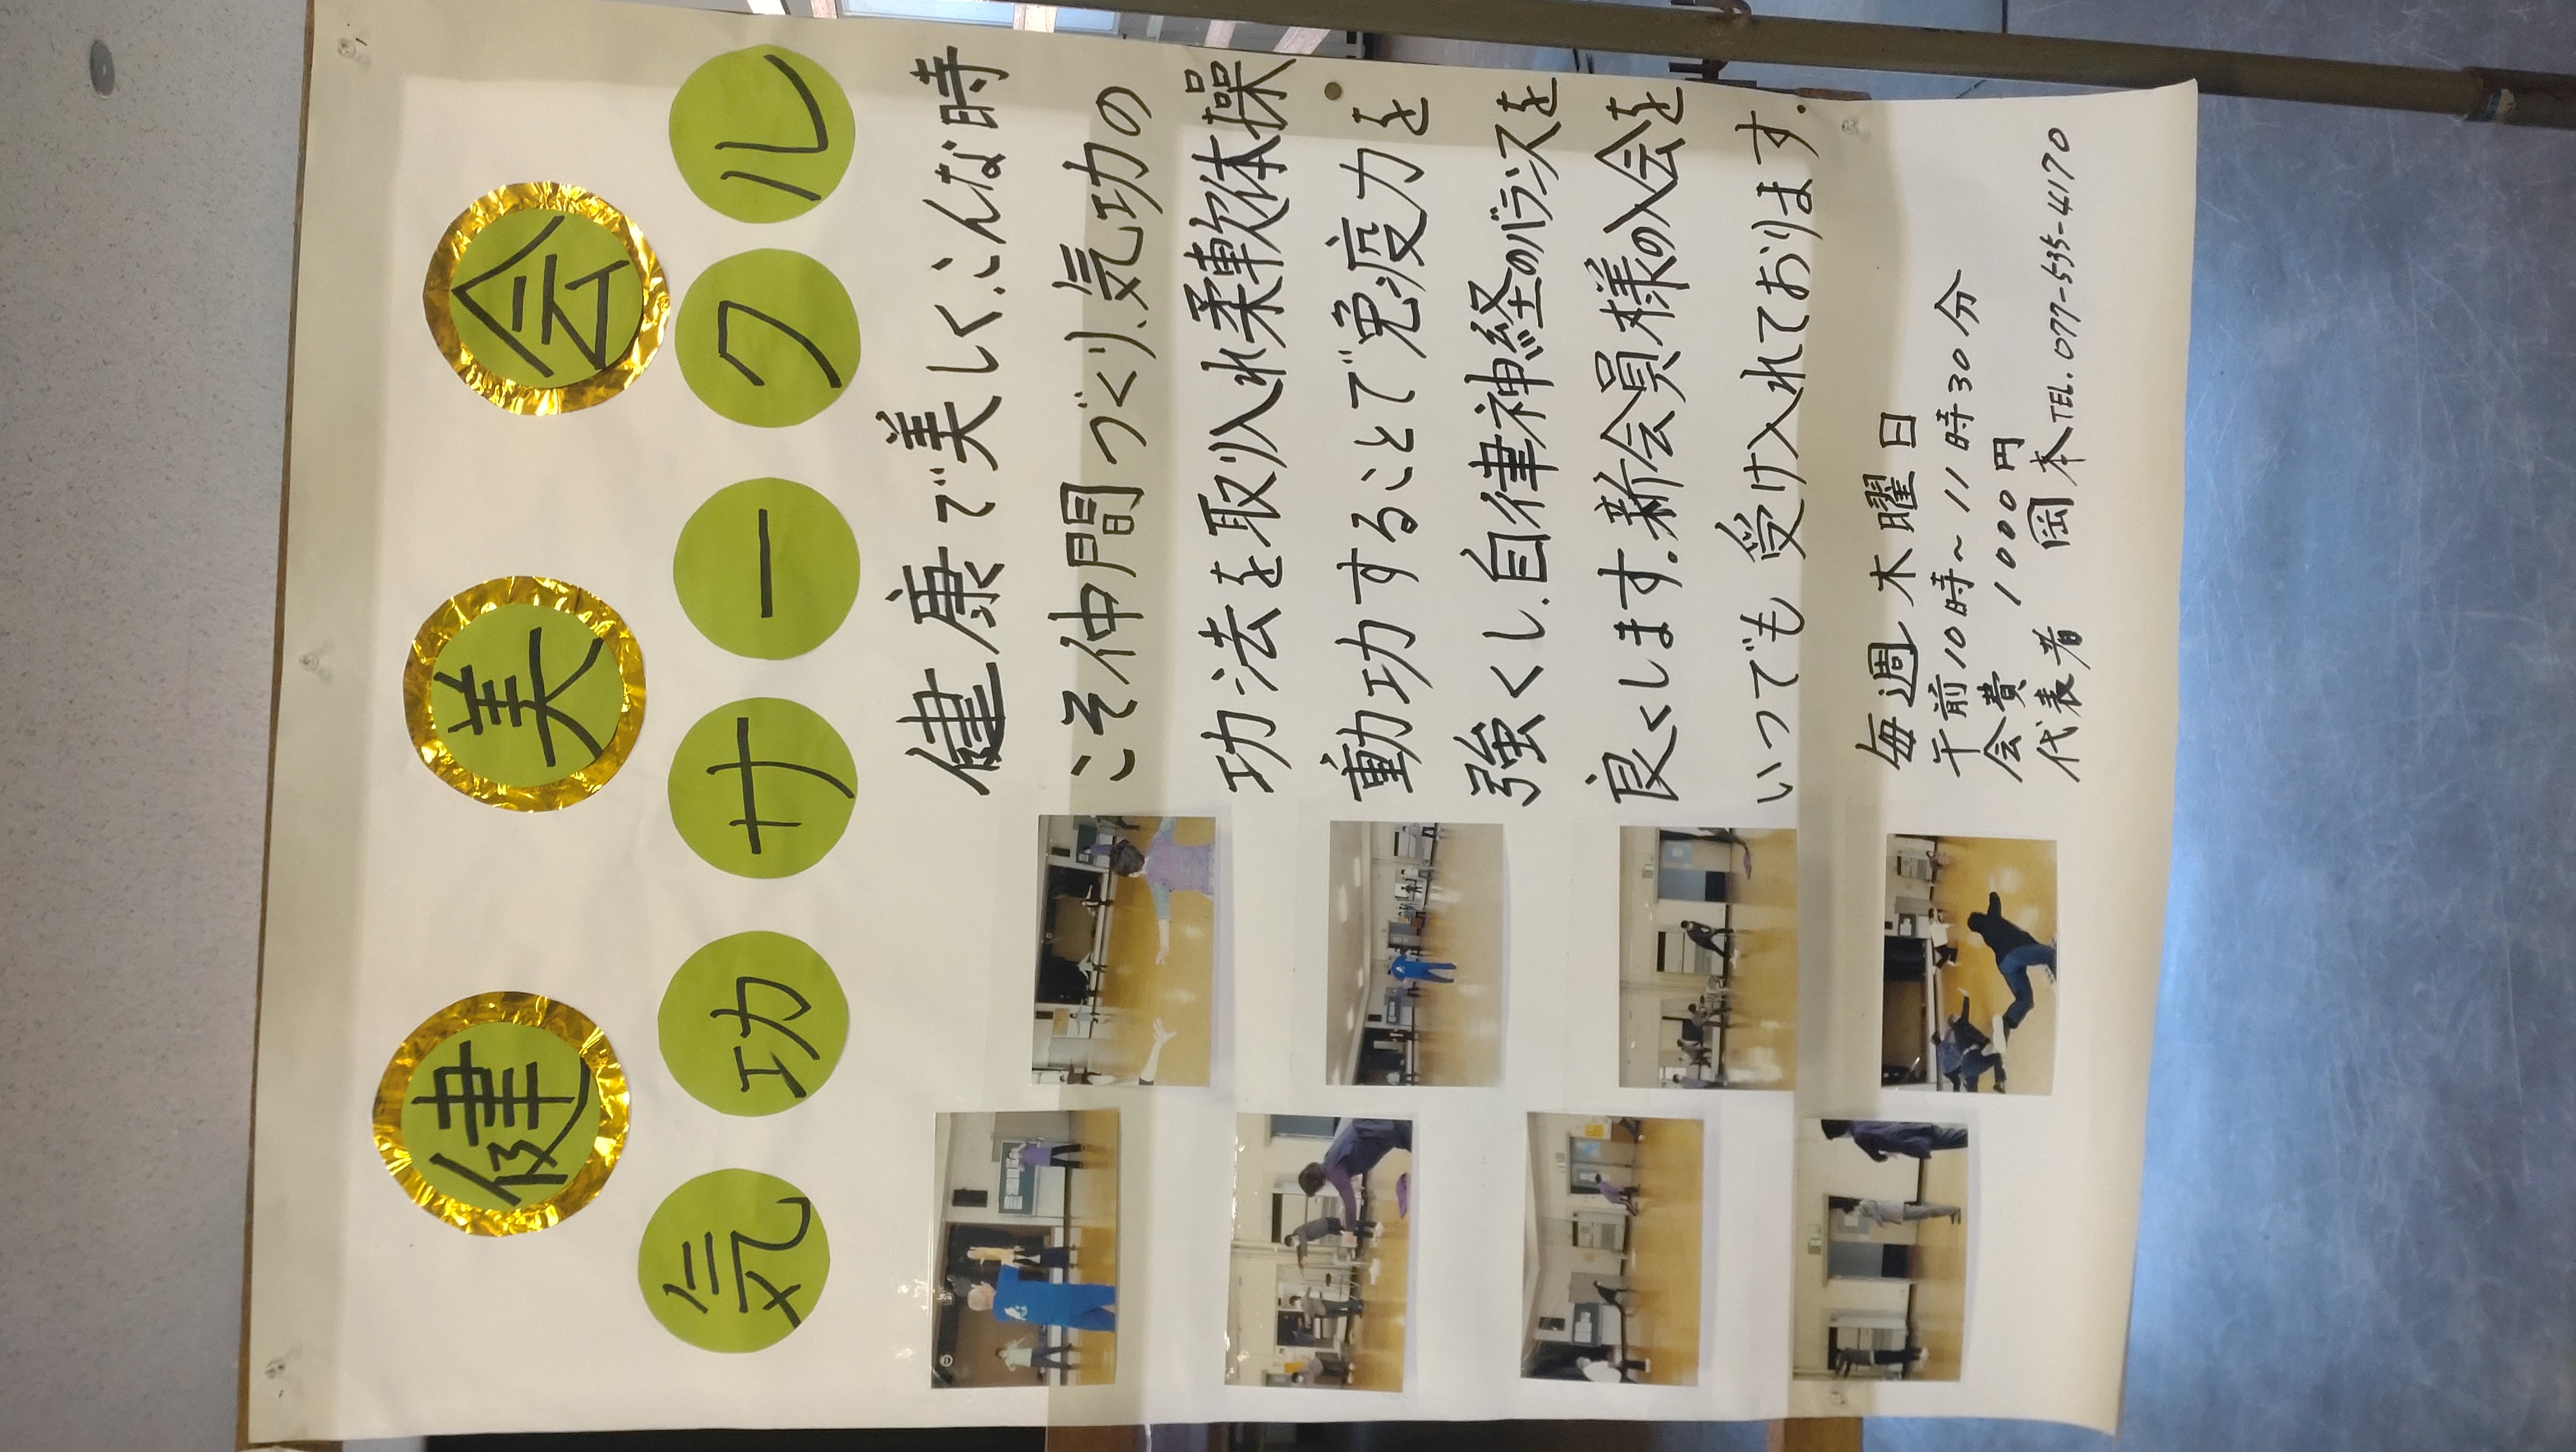 健美会
気功サークル
健康で美しく、こんな時
こそ仲間づくり、気功の
功法を取り入れ柔軟体操
動功することで免疫力を
強くし、自律神経のバランスを
良くします。新会員様の入会を
いつでも受け入れております。
毎週木曜日
午前10時〜11時30分
会費 1000円
代表者 岡本TEL.077-535-4170